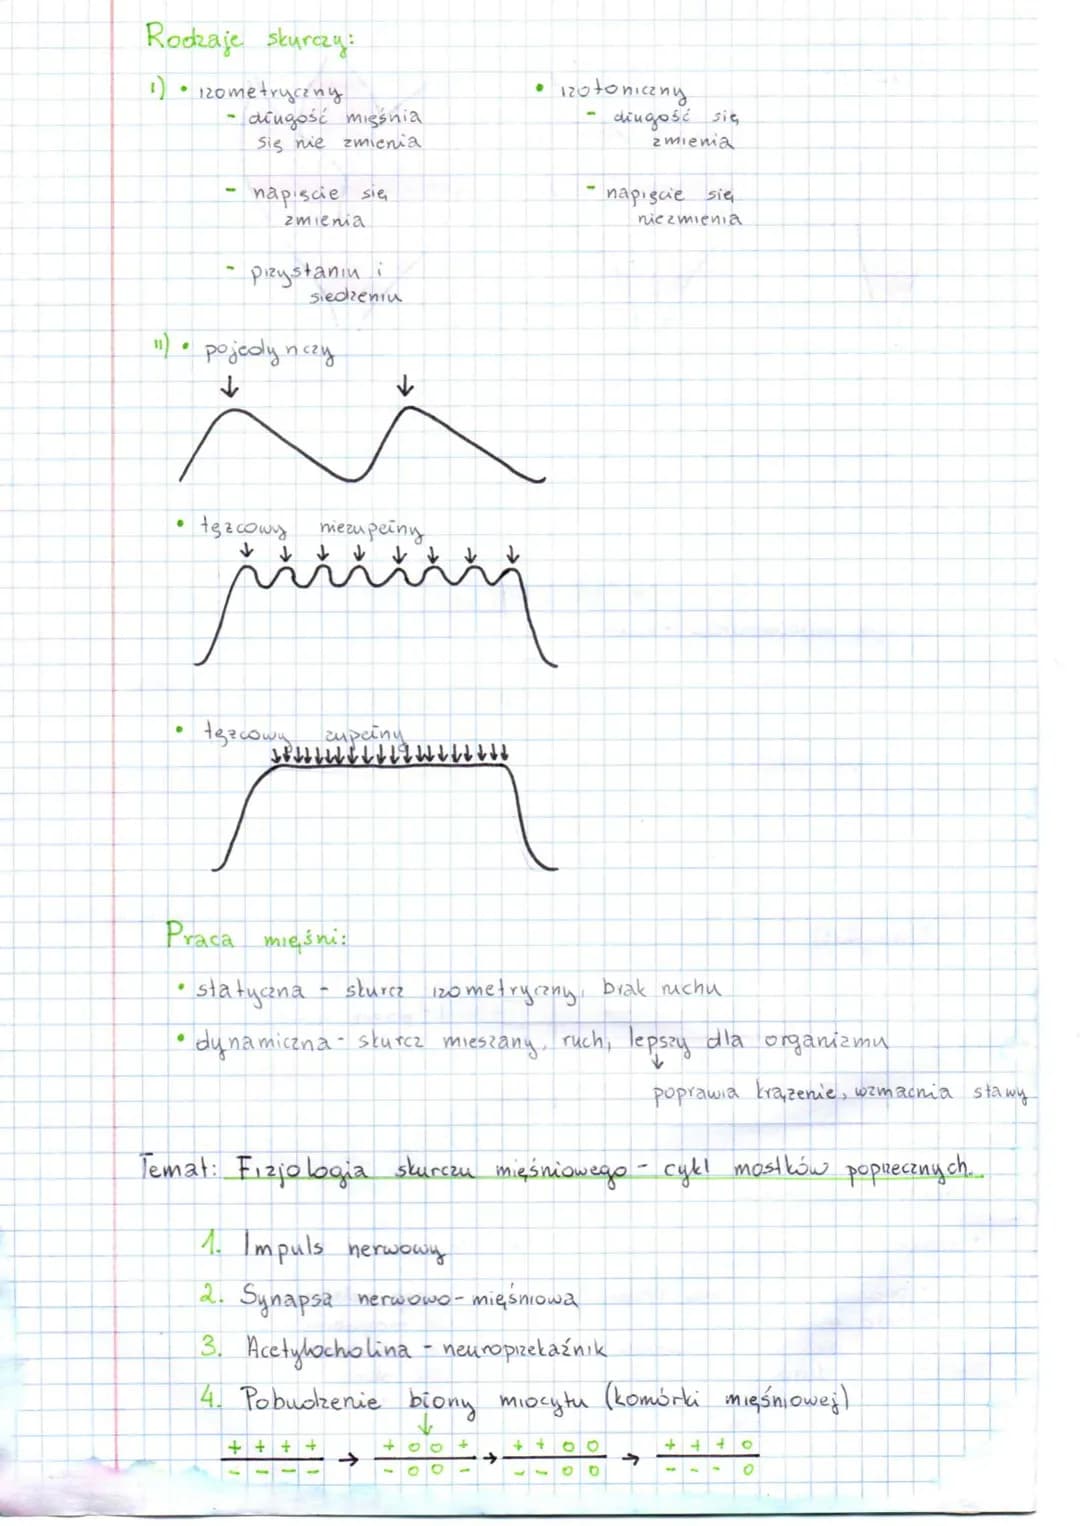 Rodzaje skurczy:
I) • izometryczny
- długość mięśnia
się nie zmienia
- napięcie się
zmienia
- przy staniu i
siedzeniu
• izotoniczny
- długość się
zmienia
- napięcie się
niezmienia
II) • pojedynczy
• tężcowy niezupełny
• tężcowy zupełny
Praca mięśni:
• statyczna - skurcz izometryczny, brak ruchu
• dynamiczna - skurcz mieszany, ruch, lepszy dla organizmu
↓
poprawia krążenie, wzmacnia stawy
Temat: Fizjologia skurczu mięśniowego - cykl mostków poprzecznych.
1. Impuls nerwowy
2. Synapsa nerwowo-mięśniowa
3. Acetylocholina - neuroprzekaźnik
4. Pobudzenie błony miocytu (komórki mięśniowej)
+ + + + → + o o + → + + o o → + + + o
- - - - - o o - - - o o - - - o